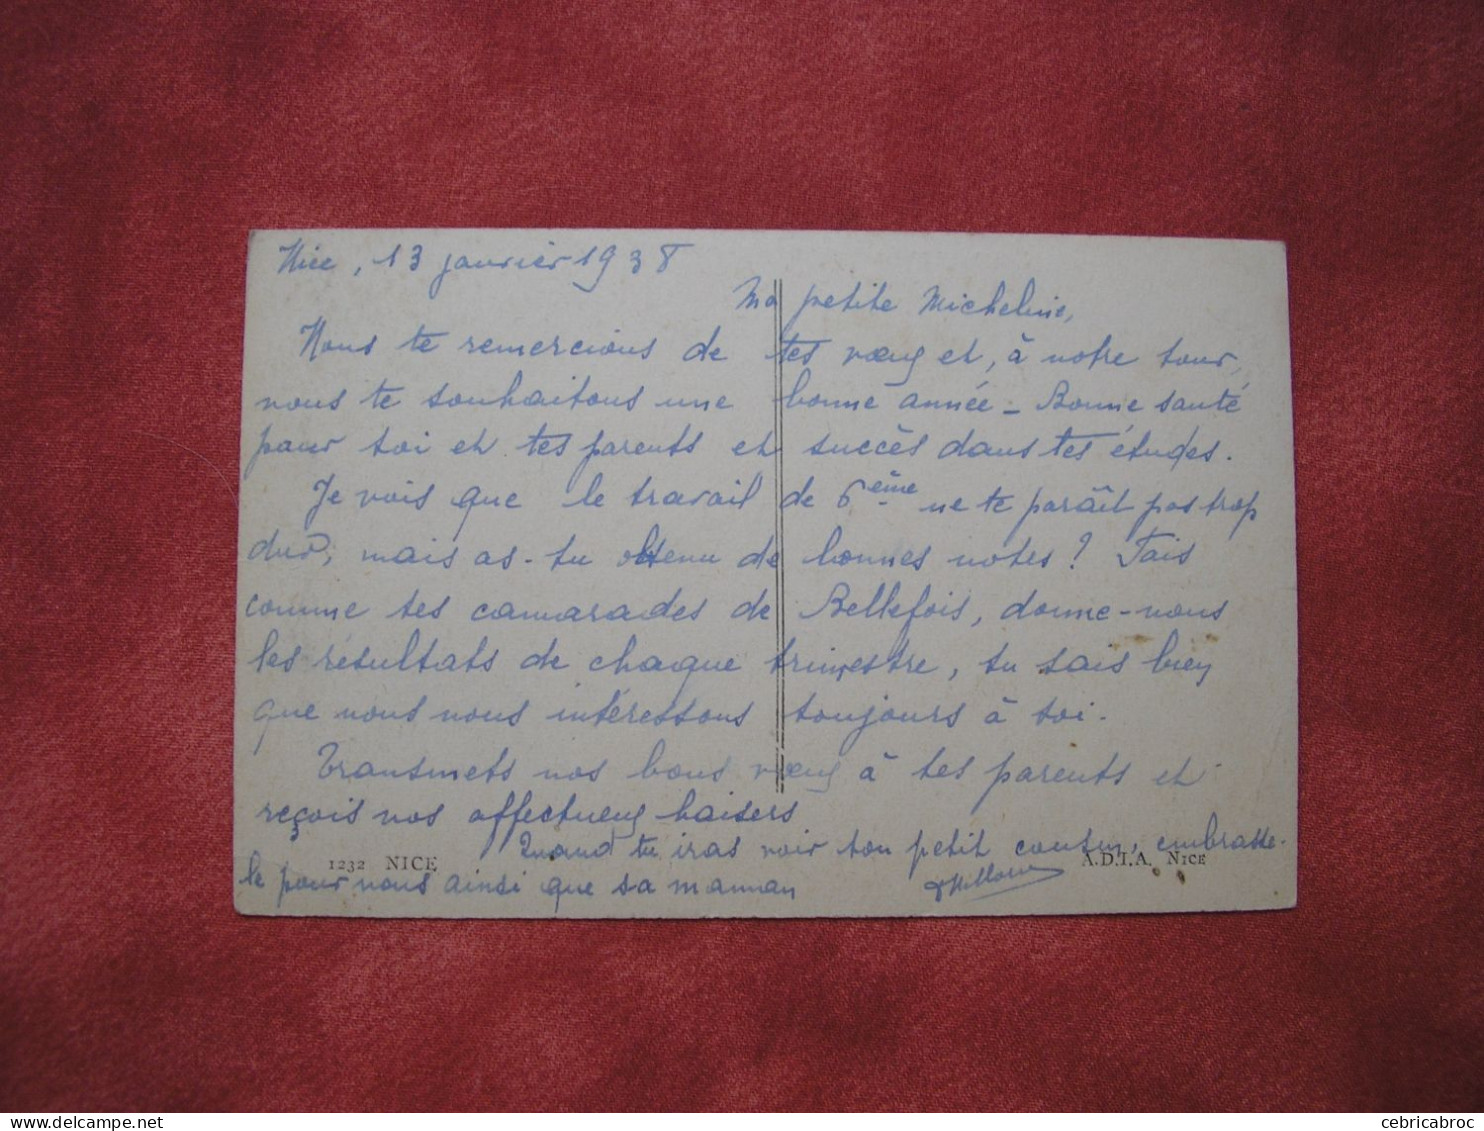 Nice, 13 janvier 1938
Ma petite Micheline,
Nous te remercions de tes vœux et, à notre tour,
nous te souhaitons une bonne année - Bonne santé
pour toi et tes parents et succès dans tes études.
Je vois que le travail de 6ème ne te paraît pas trop
dur, mais as-tu obtenu de bonnes notes ? Fais
comme tes camarades de Bellefois, donne-nous
les résultats de chaque trimestre, tu sais bien
que nous nous intéressons toujours à toi.
Transmets nos bons vœux à tes parents et
reçois nos affectueux baisers
Quand tu iras voir ton petit cousin, embrasse-
le pour nous ainsi que sa maman
1232 NICE
A.D.I.A. NICE
cebricabroc